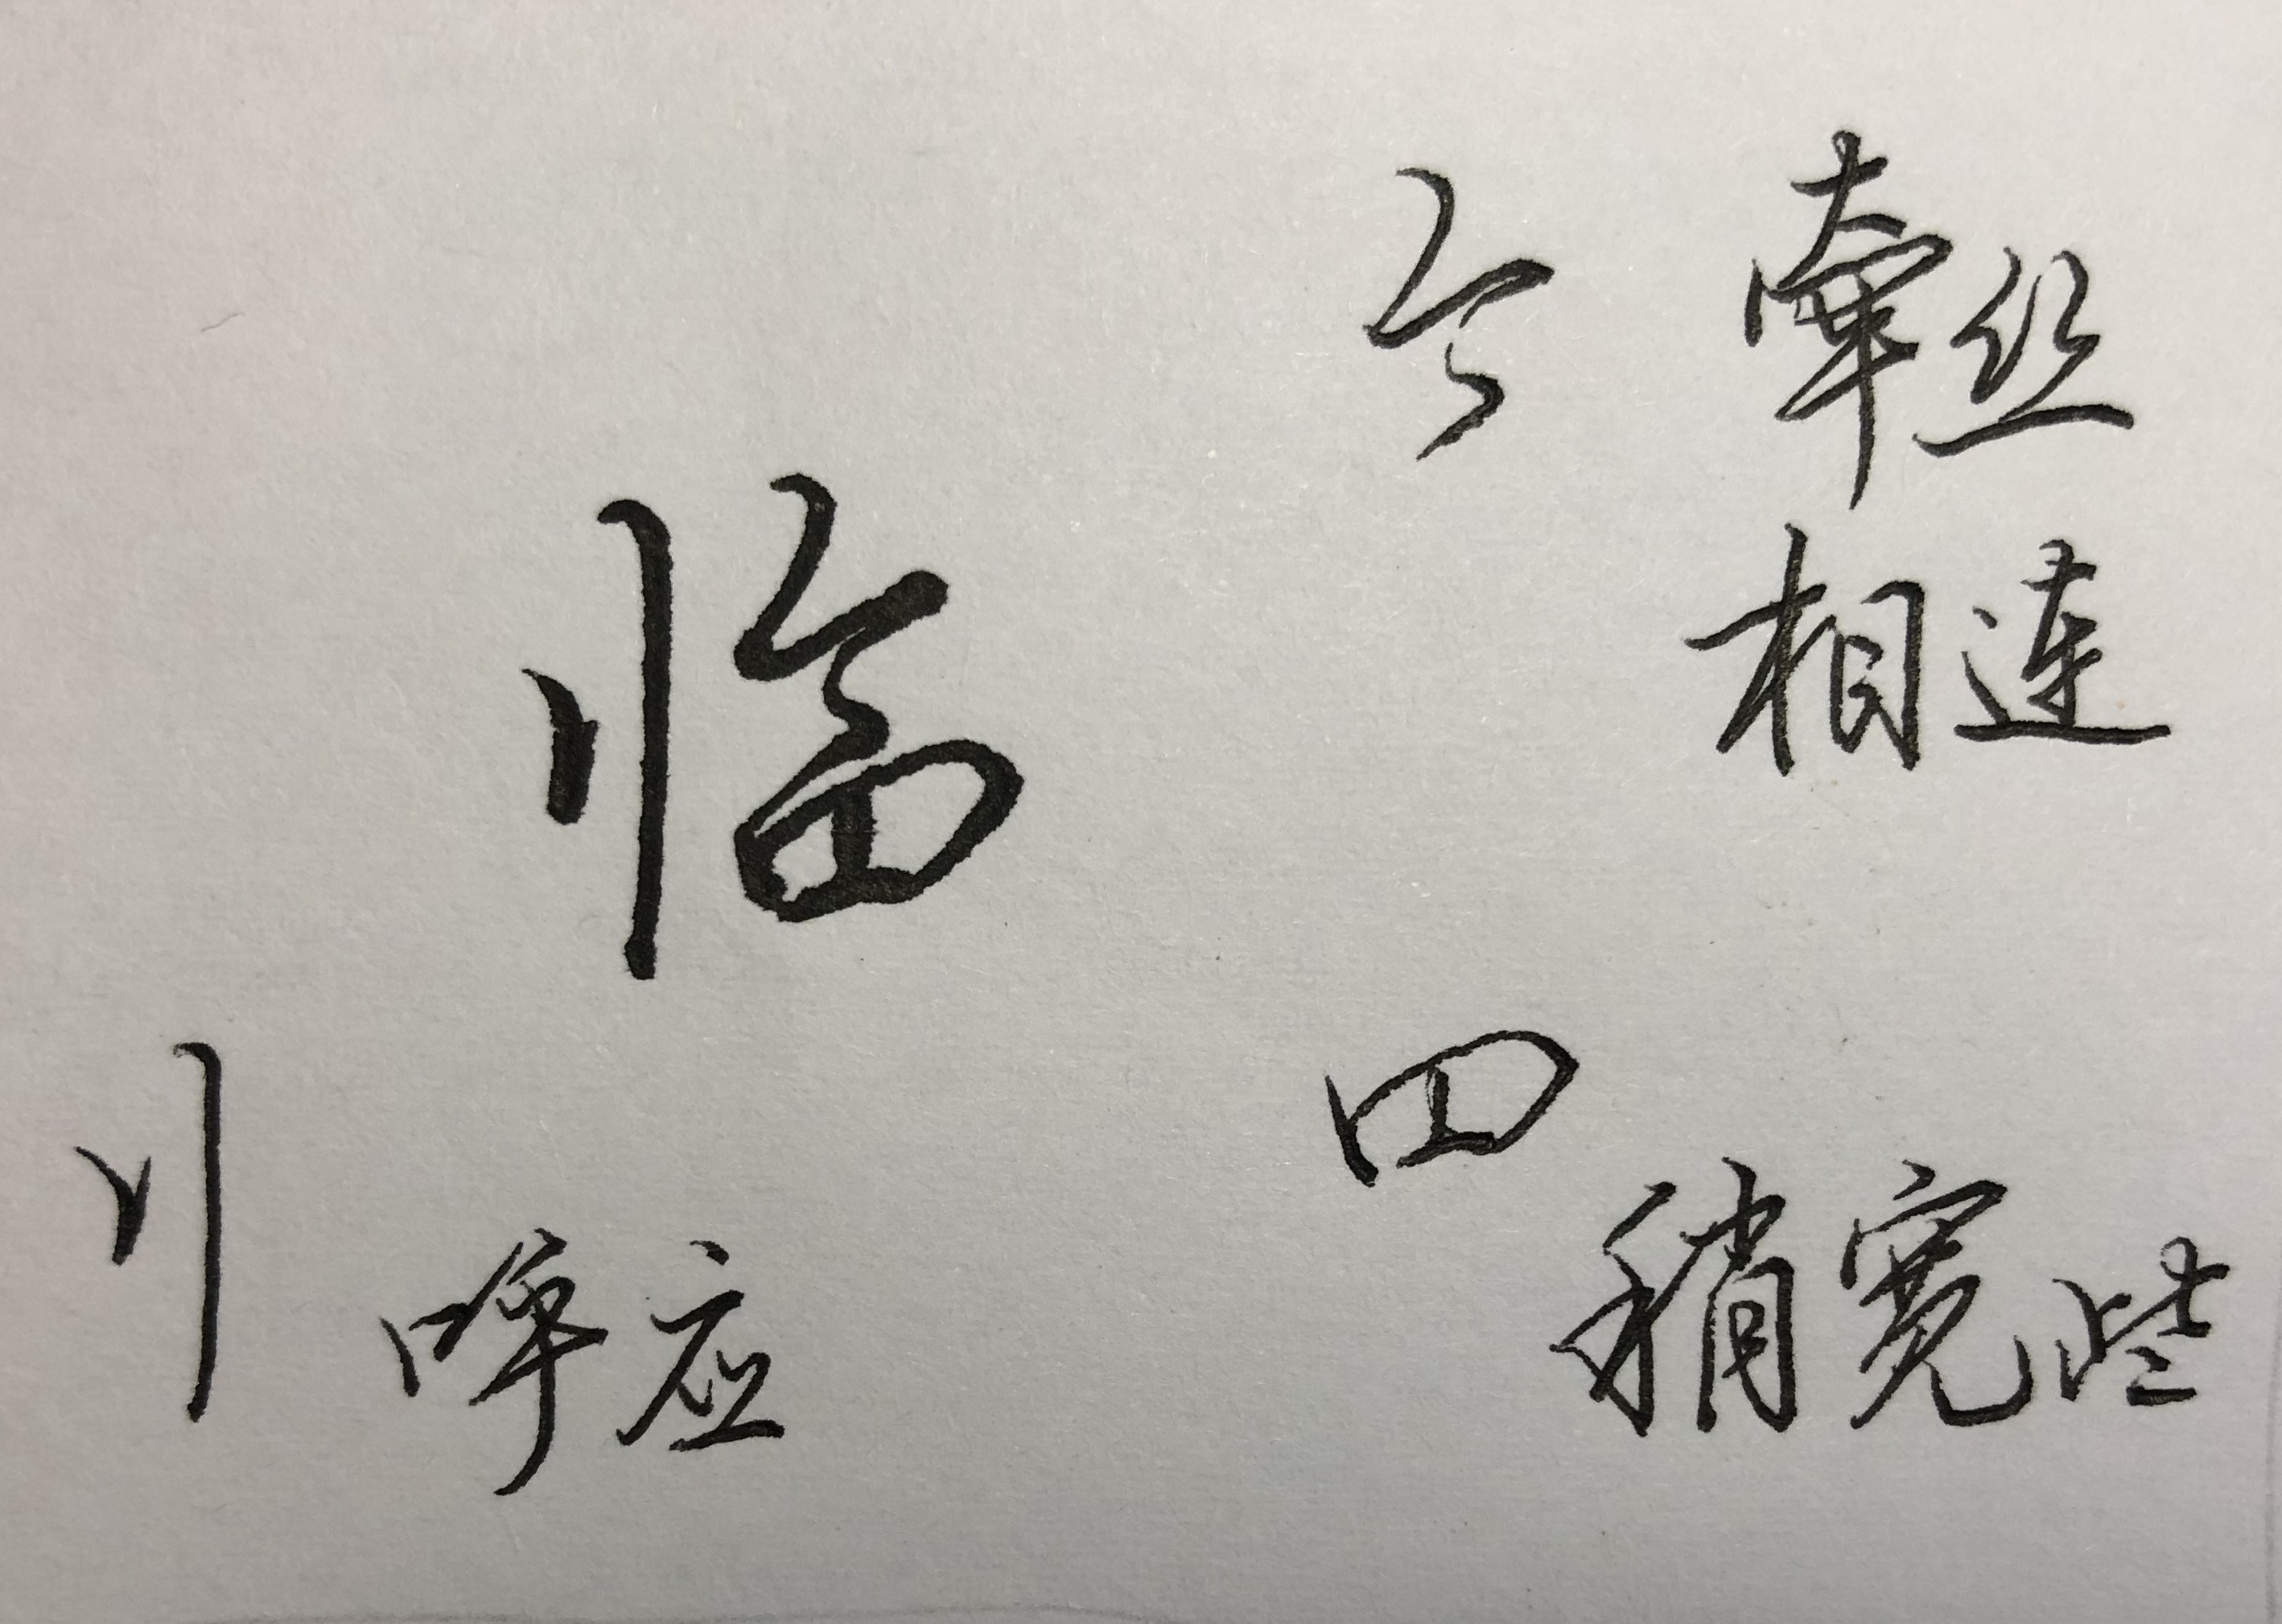 牵丝
相连
临
呼应
稍宽些